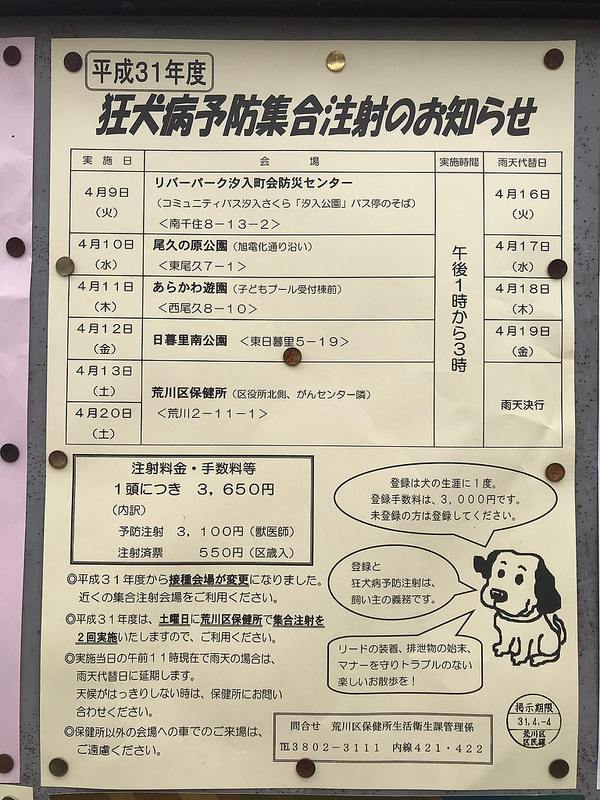 平成31年度
狂犬病予防集合注射のお知らせ
実施日 会場 実施時間 雨天代替日
4月9日
(火)
リバーパーク汐入町会防災センター
(コミュニティバス汐入さくら「汐入公園」バス停のそば)
<南千住8-13-2>
4月16日
(火)
4月10日
(水)
尾久の原公園(旭電化通り沿い)
<東尾久7-1>
4月17日
(水)
4月11日
(木)
あらかわ遊園(子どもプール受付棟前)
<西尾久8-10>
4月18日
(木)
4月12日
(金)
日暮里南公園 <東日暮里5-19>
4月19日
(金)
4月13日
(土)
4月20日
(土)
荒川区保健所(区役所北側、がんセンター隣)
<荒川2-11-1>
雨天決行
午後1時から3時
注射料金・手数料等
1頭につき 3,650円
(内訳)
予防注射 3,100円(獣医師)
注射済票 550円(区歳入)
登録は犬の生涯に1度。
登録手数料は、3,000円です。
未登録の方は登録してください。
登録と
狂犬病予防注射は、
飼い主の義務です。
リードの装着、排泄物の始末、
マナーを守りトラブルのない
楽しいお散歩を!
◎平成31年度から接種会場が変更になりました。
近くの集合注射会場をご利用ください。
◎平成31年度は、土曜日に荒川区保健所で集合注射を
2回実施いたしますので、ご利用ください。
◎実施当日の午前11時現在で雨天の場合は、
雨天代替日に延期します。
天候がはっきりしない時は、保健所にお問い
合わせください。
◎保健所以外の会場への車でのご来場は、
ご遠慮ください。
問合せ 荒川区保健所生活衛生課管理係
℡3802-3111 内線421・422
掲示期限
31.4.-4
荒川区
区民課